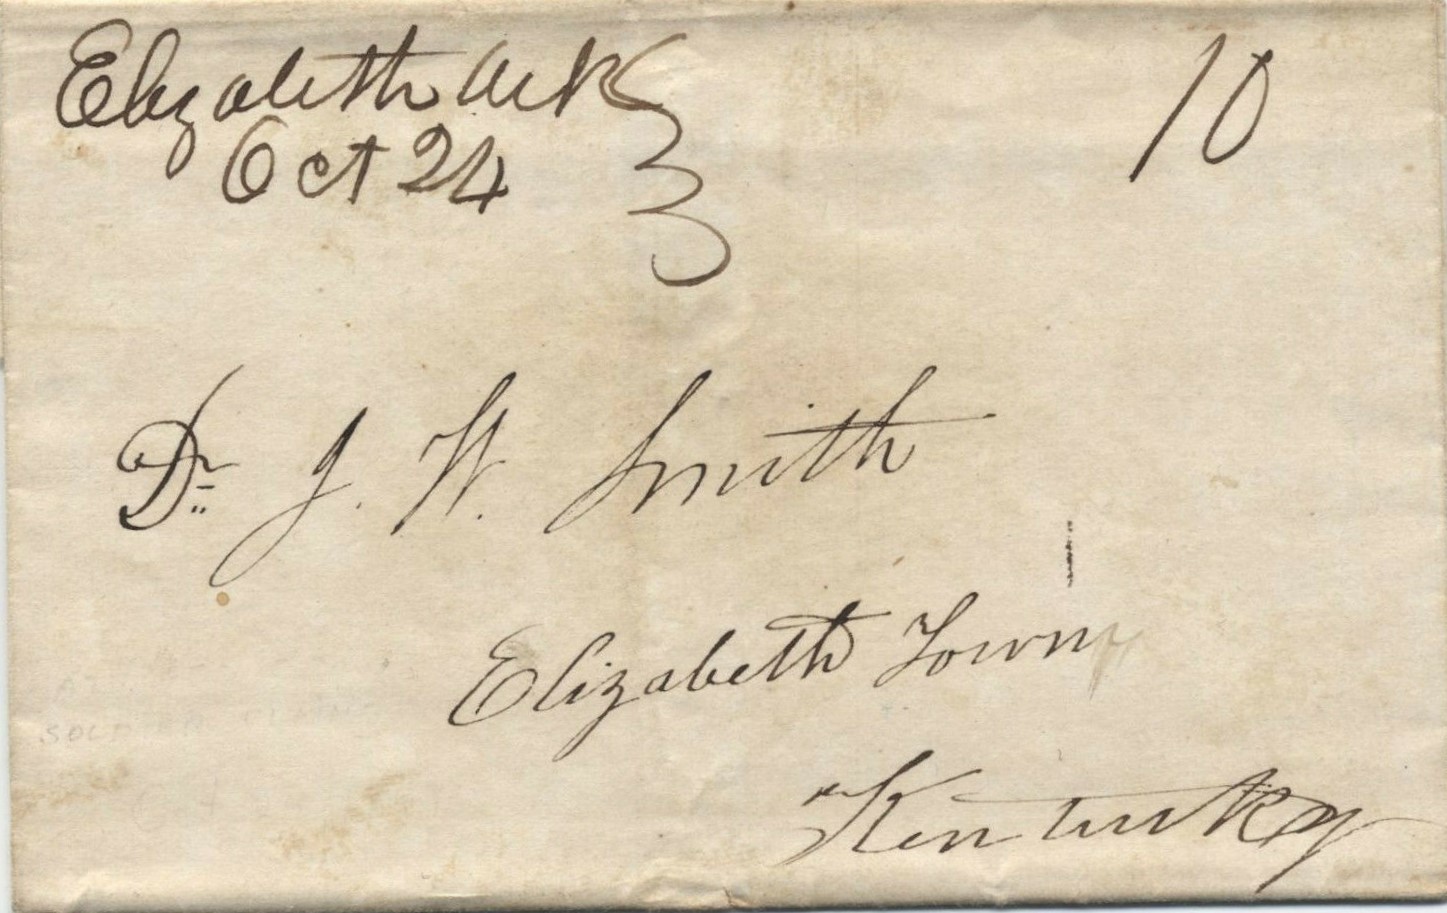 Elizabeth Ark
Oct 24
10
Dr J. W. Smith
Elizabeth Town
Kentucky